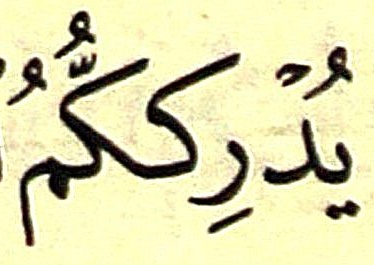 يُدْرِككُّمُ